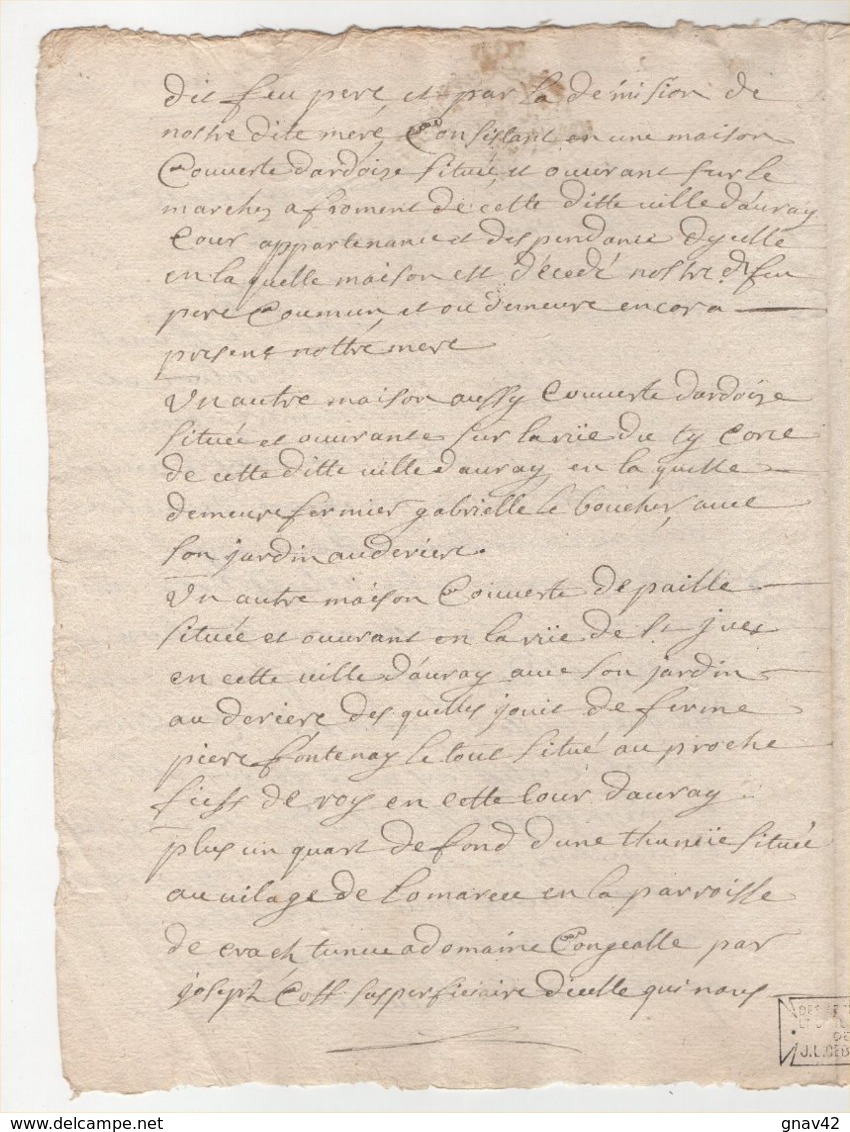 dit feu pere, et par la demision de
nostre dite mere, Consistant en une maison
Couverte dardoize situeé, et ouurant sur le
marchez a froment de cette ditte ville dauray
Cour appartenance et despendance dycelle
en laquelle maison est décedé nostre dt feu
pere Coumun, et ou demeure encor a
present nottre mere
Un autre maison aussy Couverte dardoize
située et ouurante sur la rüe du ty Corre
de cette ditte ville dauray en la quelle
demeure fermier gabrielle le boucher, avec
son jardin au deriere.
Un autre maison Couverte de paille
située et ouurant en la rüe de st yves
en cette ville dauray avec son jardin
au deriere des quelles jouit de ferme
piere fontenay le tout situé au proche
fieff de roy en cette Cour dauray
plus un quart de fond dune thenüe située
au vilage de Lomarec en la parroisse
de crach tenue a domaine Congeable par
joseph Coff superficiaire dicelle qui nous
J.L.DEB
gnav42